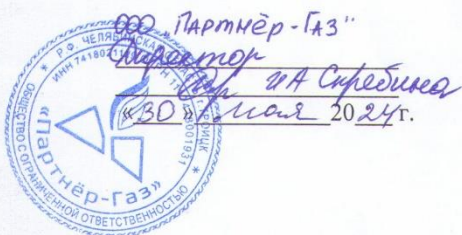 ООО "Партнёр-Газ"
Директор
И А Скребина
«30» мая 2024г.
Р.Ф. ЧЕЛЯБИНСКАЯ
г. ТРОИЦК
ИНН 741802
ОБЩЕСТВО С ОГРАНИЧЕННОЙ ОТВЕТСТВЕННОСТЬЮ
«Партнёр-Газ»